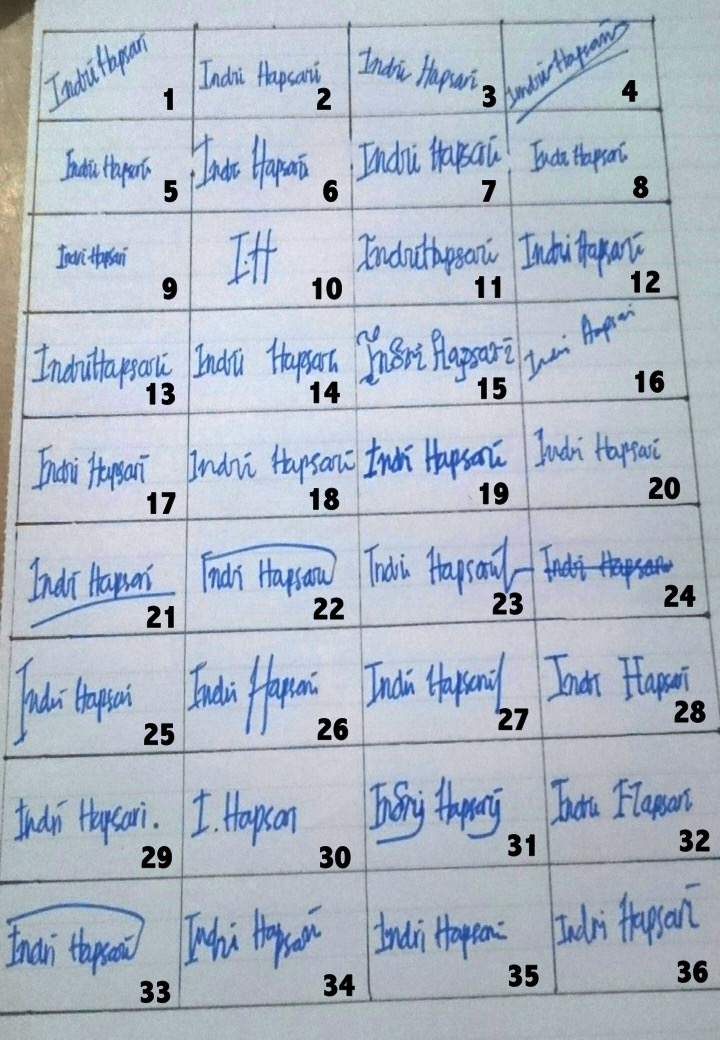 Indri Hapsari
1
Indri Hapsari
2
Indri Hapsari
3
Indri Hapsari
4
Indri Hapsari
5
Indri Hapsari
6
Indri Hapsari
7
Indri Hapsari
8
Indri Hapsari
9
I.H
10
Indri Hapsari
11
Indri Hapsari
12
Indri Hapsari
13
Indri Hapsari
14
Indri Hapsari
15
Indri Hapsari
16
Indri Hapsari
17
Indri Hapsari
18
Indri Hapsari
19
Indri Hapsari
20
Indri Hapsari
21
Indri Hapsari
22
Indri Hapsari
23
Indri Hapsari
24
Indri Hapsari
25
Indri Hapsari
26
Indri Hapsari
27
Indri Hapsari
28
Indri Hapsari.
29
I. Hapsari
30
Indrij Hapsarij
31
Indri Hapsari
32
Indri Hapsari
33
Indri Hapsari
34
Indri Hapsari
35
Indri Hapsari
36